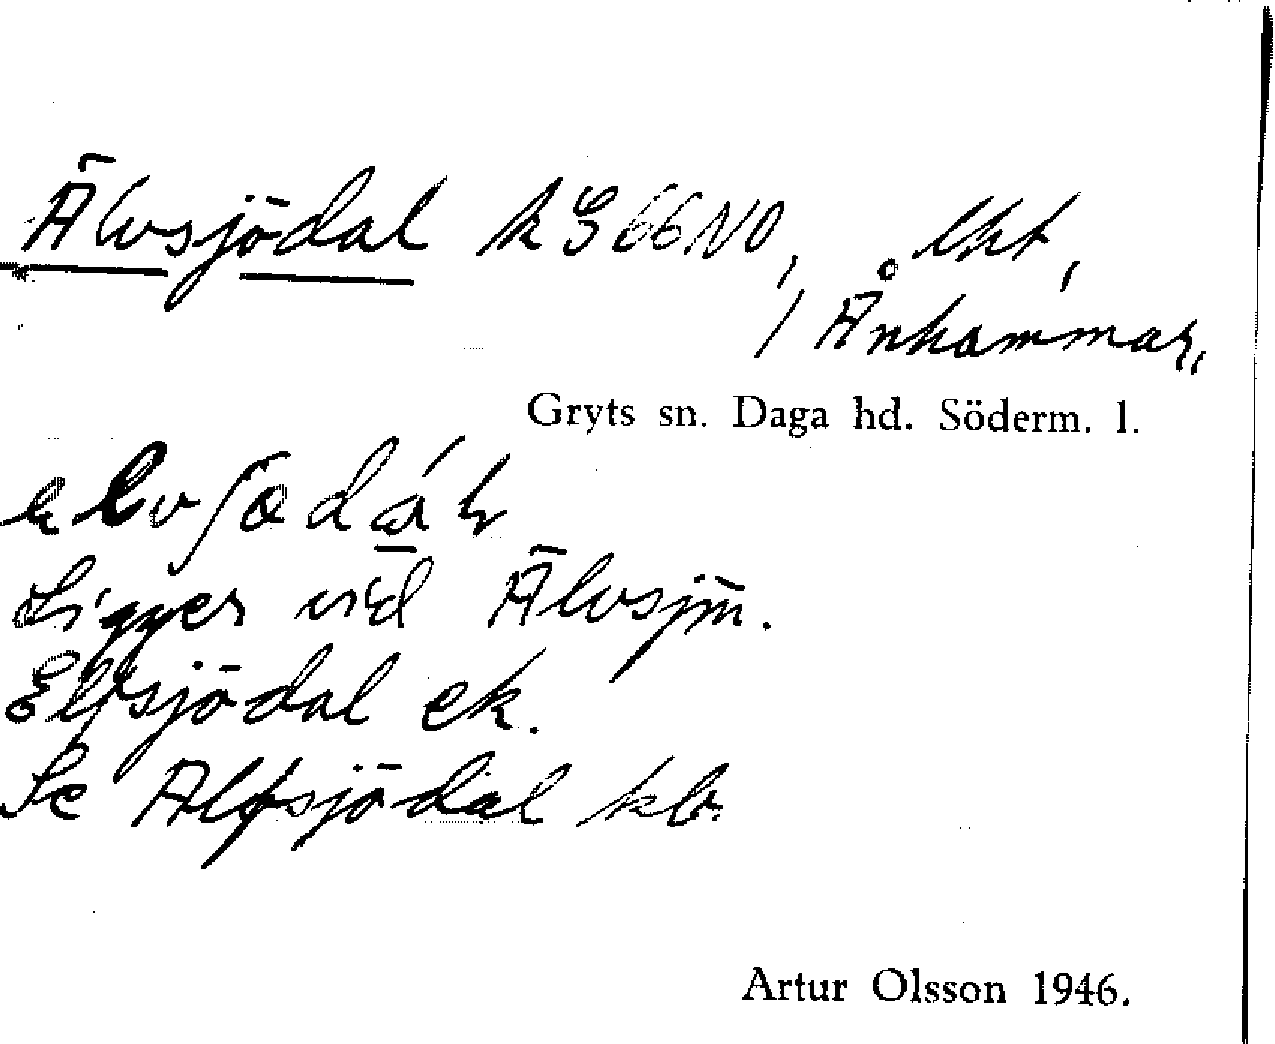 Älvsjödal k S 66 NO, lht,
/ Ånhammar,
Gryts sn. Daga hd. Söderm. l.
Ligger vid Älvsjön.
Elfsjödal ek.
Se Älfsjödal kb.
Artur Olsson 1946.